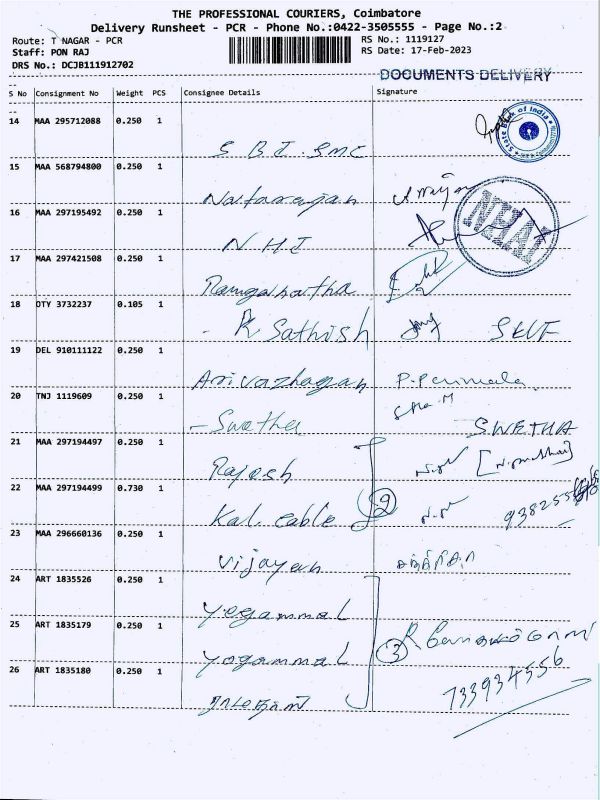 THE PROFESSIONAL COURIERS, Coimbatore
Delivery Runsheet - PCR - Phone No.:0422-3505555 - Page No.:2
Route: T NAGAR - PCR RS No.: 1119127
Staff: PON RAJ RS Date: 17-Feb-2023
DRS No.: DCJB111912702
DOCUMENTS DELIVERY
S No Consignment No Weight PCS Consignee Details Signature
14 MAA 295712088 0.250 1 S.B.I. SMC
State Bank of India
15 MAA 568794800 0.250 1 Natarajan
16 MAA 297195492 0.250 1 N H I
NHAI
17 MAA 297421508 0.250 1
18 DTY 3732237 0.105 1 - R Sathish SELF
19 DEL 910111122 0.250 1 Arivazhagan P. Perumala
20 TNJ 1119609 0.250 1 - Swetha SWETHA
21 MAA 297194497 0.250 1 Rajesh
22 MAA 297194499 0.730 1 Kal cable 2
23 MAA 296660136 0.250 1 Vijayan
24 ART 1835526 0.250 1 yogammal
25 ART 1835179 0.250 1 yogammal 3
26 ART 1835180 0.250 1
733934556